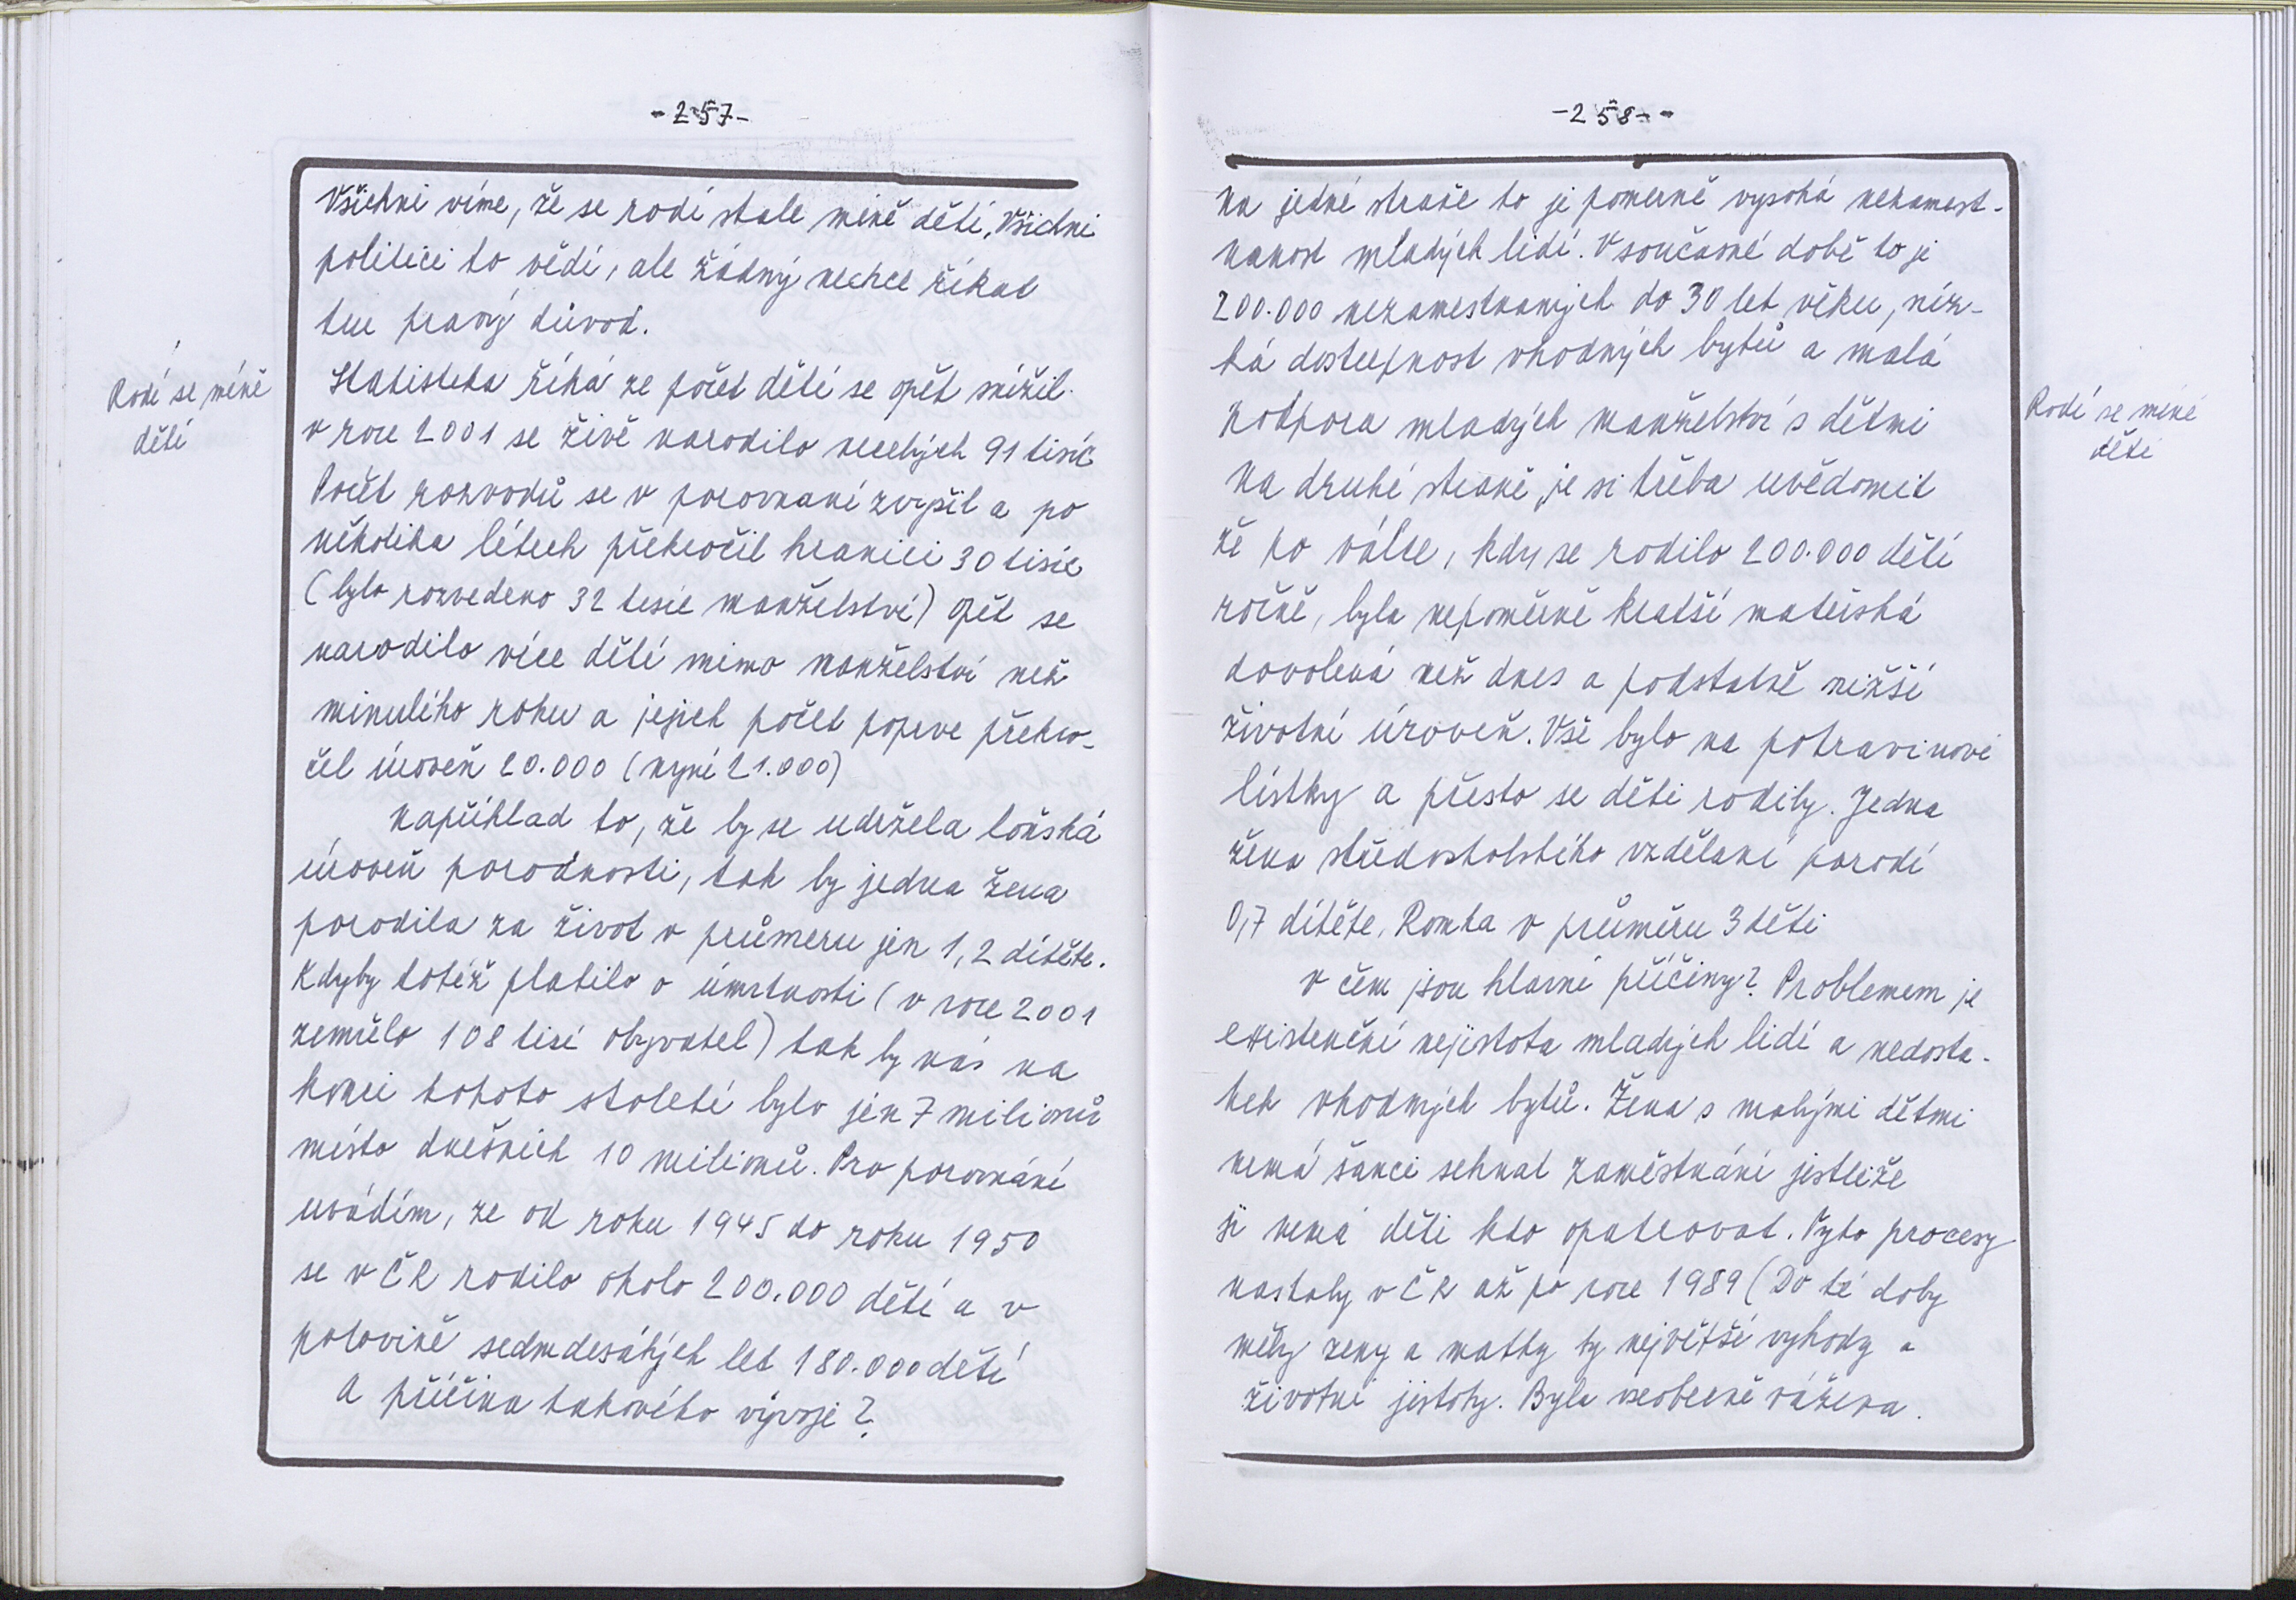 -257-
Všichni víme, že se rodí stale méně dětí, Všichni
politici to vědí, ale žádný nechce říkat
ten pravý důvod.
Rodí se méně
dětí
Statistika říká ze počet dětí se opět snížil
v roce 2001 se živě narodilo necelých 91 tisíc
Počet rozvodů se v porovnaní zvýšil a po
několika létech překročil hranici 30 tisíc
(bylo rozvedeno 32 tisíc manželství) opět se
narodilo více dětí mimo manželství než
minulého roku a jejich počet poprve překro-
čil úroveň 20.000 (nyní 21.000)
Kapříklad to, že by se udržela loňská
úroveň porodnosti, tak by jedna žena
porodila za život v průmeru jen 1,2 dítěte.
Kdyby totéž platilo o úmrtnosti (v roce 2001
zemřelo 108 tisí obyvatel) tak by nás na
konci tohoto století bylo jen 7 milionů
místo dnešních 10 milionů. Pro porovnání
uvádím, ze od roku 1945 do roku 1950
se v ČR rodilo okolo 200.000 dětí a v
polovině sedmdesátých let 180.000 dětí
A příčina takového vývoje?
-258--
Na jedné straňe to je pomerně vysoká nezamest-
nanost mladých lidí. V současné době to je
200.000 nezamestnaných do 30 let věku, níz-
ká dostupnost vhodných bytů a malá
podpora mladých manželství s dětmi
Rodí se méně
děti
Na druhé straně je si třeba uvědomit
žě po válce, kdy se rodilo 200.000 dětí
ročně, byla nepoměrně kratší mateřská
dovolená než dnes a podstatně nižší
životní úroveň. Vše bylo na potravinové
lístky a přesto se děti rodily. Jedna
žena středoskolského vzdělaní porodí
0,7 dítěte, Romka v průměru 3 děti
V čem jsou hlavní příčiny? Problemem je
existenční nejistota mladých lidí a nedosta-
tek vhodných bytů. Žena s malými dětmi
nemá šanci sehnat zaměstnání jestliže
jí nemá děti kdo opatrovat. Tyto procesy
nastaly v ČR až po roce 1989 (Do té doby
měly zeny a matky ty největší vyhody a
životní jistoty. Byla vseobecně vážena.